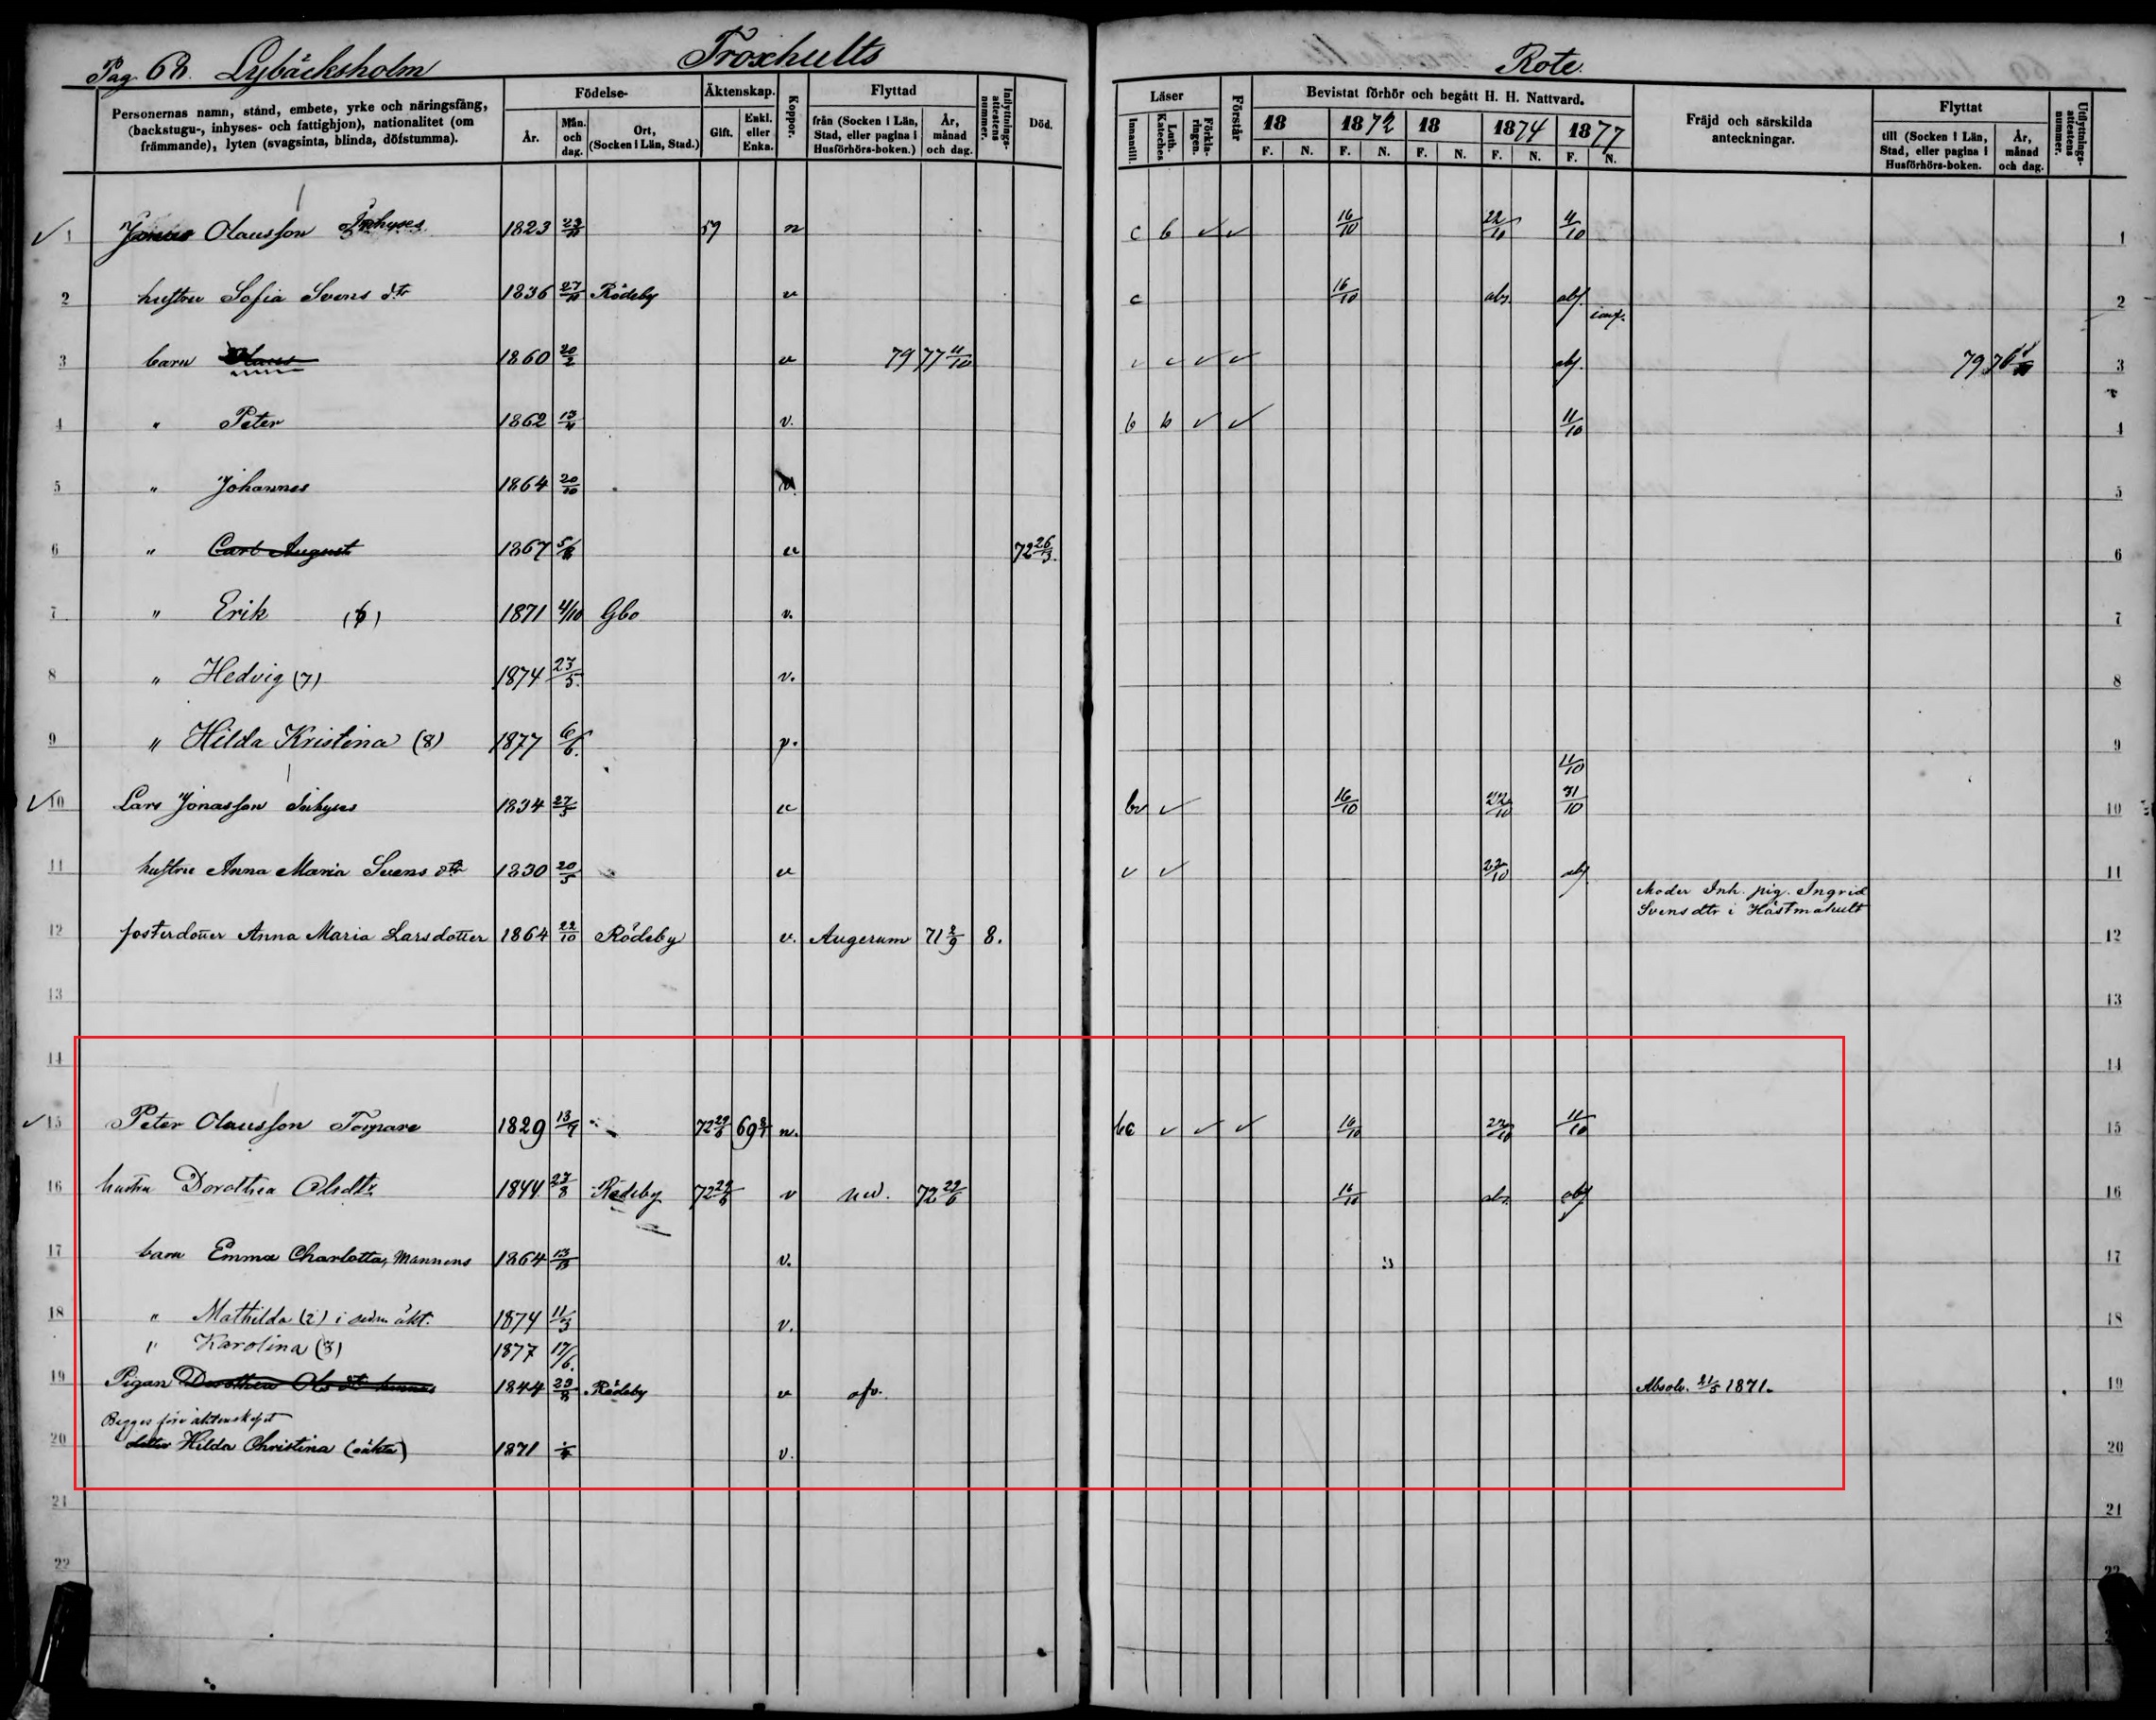 Pag 68. Lybäcksholm Troxhults Rote.
Personernas namn, stånd, embete, yrke och näringsfång, (backstugu-, inhyses- och fattighjon), nationalitet (om främmande), lyten (svagsinta, blinda, döfstumma).
Födelse-
År.
Mån. och dag.
Ort, (Socken i Län, Stad.)
Äktenskap.
Gift.
Enkl. eller Enka.
Koppor.
Flyttad
från (Socken i Län, Stad, eller pagina i Husförhörs-boken.)
År, månad och dag.
Inflyttnings-attestens nummer.
Död.
Läser
Innantill.
Luth. Kateches
Förkla-ringen.
Förstår
Bevistat förhör och begått H. H. Nattvard.
18 1872 18 1874 1877
F. N. F. N. F. N. F. N. F. N.
Fräjd och särskilda anteckningar.
Flyttat
till (Socken i Län, Stad, eller pagina i Husförhörs-boken.
År, månad och dag.
Utflyttnings-attestens nummer.
1 Jonas Olausson Inhyses 1823 59 n c b ✓ ✓ 16/10 22/10 11/10 1
2 hustru Sofia Svens dtr 1836 Rödeby v c 16/10 abs. abs. 2
3 barn 1860 20/2 v 79 77 11/10 ✓ ✓ abs. 79 3
4 " Peter 1862 v. b b ✓ ✓ 11/10 4
5 " Johannes 1864 20/10 5
6 " Carl August 1867 v 72 26/3. 6
7 " Erik (6) 1871 4/10 Gbo v. 7
8 " Hedvig (7) 1874 23/5. v. 8
9 " Hilda Kristina (8) 1877 6/6. v. 9
11/10
10 Lars Jonasson Inhyses 1834 27/5 v ✓ 16/10 22/10 31/10 10
11 hustru Anna Maria Svens dtr 1830 20/5 v ✓ ✓ 22/10 abs 11
Moder Inh. pig. Ingrid
Svens dtr i Hästmahult
12 fosterdotter Anna Maria Larsdotter 1864 22/10 Rödeby v. Augerum 71 2/9 8. 12
13 13
14 14
15 Peter Olausson Torpare 1829 72 29/6 69 n. bc ✓ ✓ ✓ 16/10 22/10 11/10 15
16 hustru Dorothea Olsdtr 1844 23/8 Rödeby 72 29/6 v ned. 72 29/6 16/10 abs. abs 16
17 barn Emma Charlotta, Mannens 1864 v. 17
18 " Mathilda (2) i sedn. äkt. 1874 11/3 v. 18
" Karolina (3) 1877 17/6.
19 Pigan Dorothea Ols dtr hennes 1844 23/8 Rödeby v ofv. Absolv. 21/5 1871. 19
Begges före äktenskapet
20 dotter Hilda Christina (oäkta) 1871 v. 20
21 21
22 22